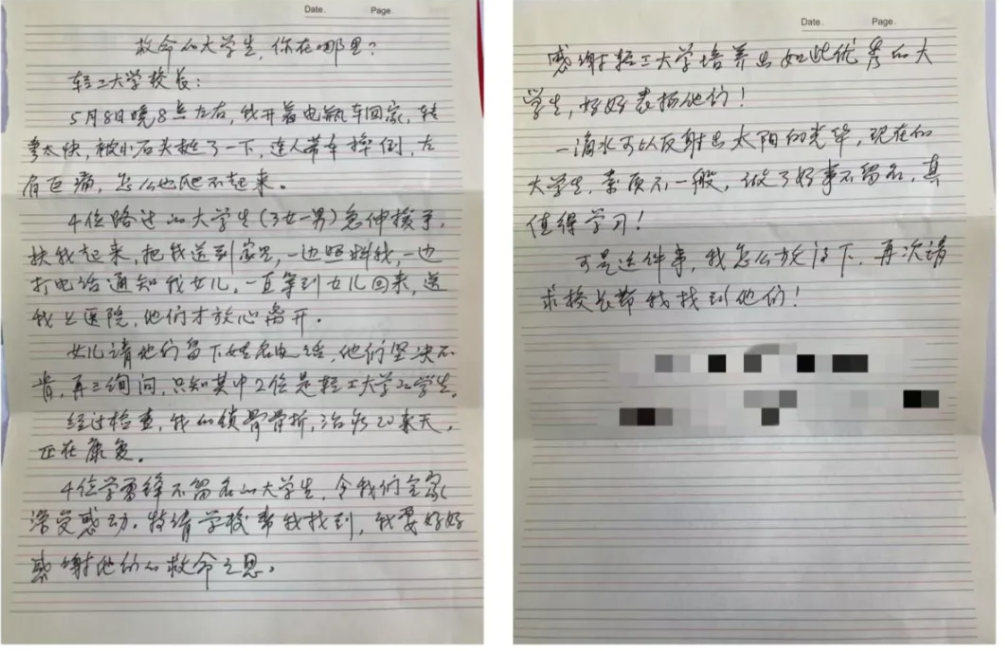 Date.
Page.
救命的大学生,你在哪里?
轻工大学校长:
5月8日晚8点左右,我开着电瓶车回家,转
弯太快,被小石头挺了一下,连人带车摔倒,左
肩巨痛,怎么也爬不起来。
4位路过的大学生(3女一男)急伸援手,
扶我起来,把我送到家里,一边照料我,一边
打电话通知我女儿,一直等到女儿回来,送
我上医院,他们才放心离开。
女儿请他们留下姓名电话,他们坚决不
肯,再三询问,只知其中2位是轻工大学的学生。
经过检查,我的锁骨骨折,治疗20来天,
正在康复。
4位学雷锋不留名的大学生,令我们全家
深受感动。特请学校帮我找到,我要好好
感谢他们的救命之恩。
Date.
Page.
感谢轻工大学培养出如此优秀的大
学生,好好表扬他们!
一滴水可以反射出太阳的光华,现在的
大学生,素质不一般,做了好事不留名,真
值得学习!
可是这件事,我怎么放得下,再次请
求校长帮我找到他们!